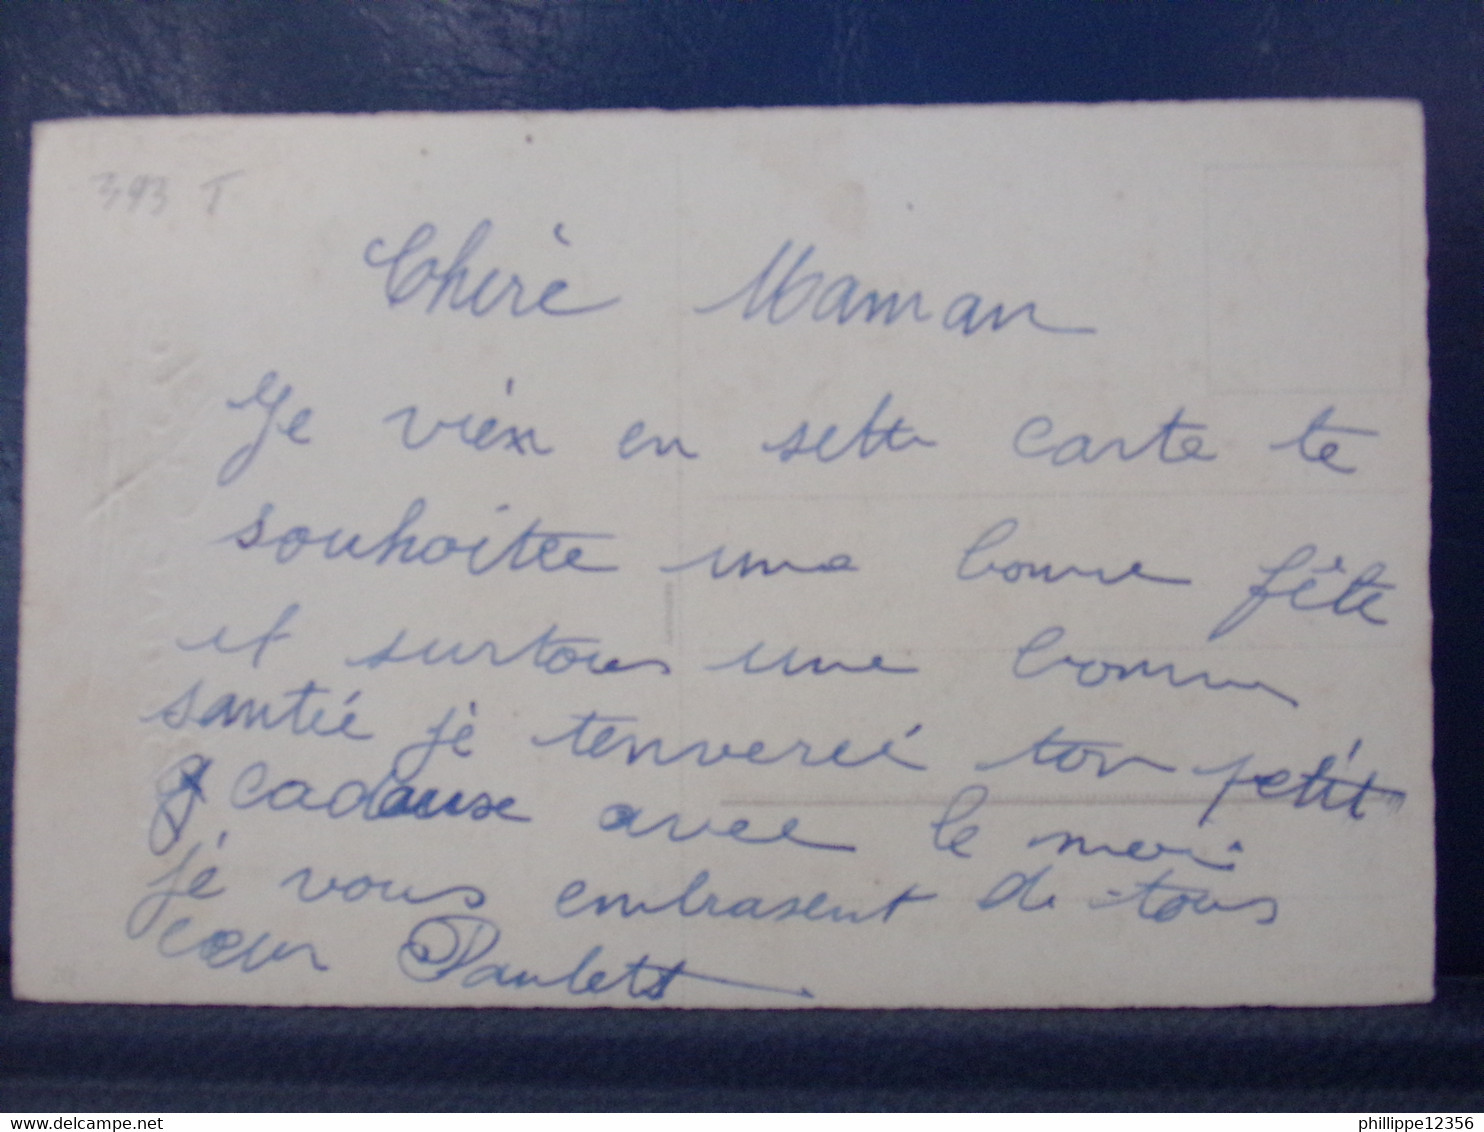 393 T
Cheré Maman
Je vien en sette carte te
souhoitee une bonne fête
et surtous une bonne
santié je tenvereé ton petit
cadause avec le moi
je vous embrasent de tous
cœur Paulett
delcampe.net
philippe12356